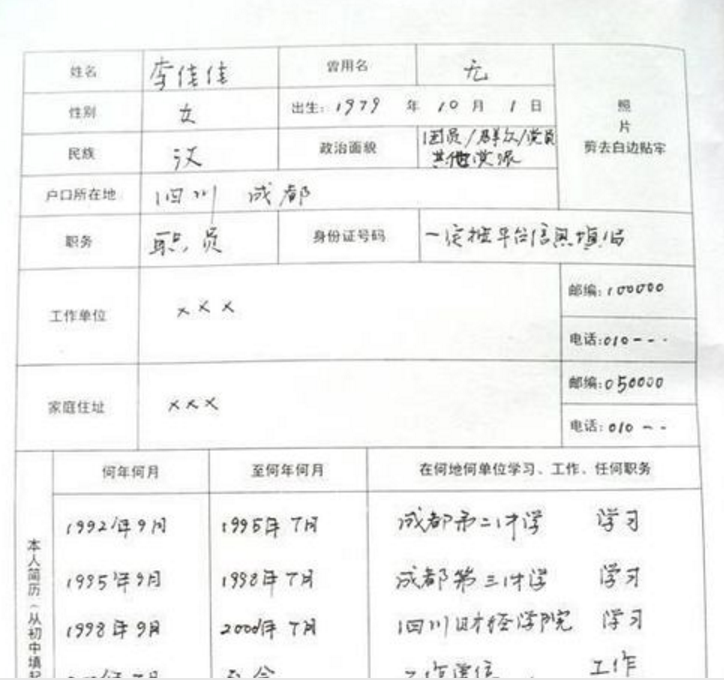 姓名 李佳佳 曾用名 无
性别 女 出生：1979 年 10 月 1 日
照
片
剪去白边贴牢
民族 汉 政治面貌 团员/群众/党员
其他党派
户口所在地 四川 成都
职务 职员 身份证号码 一定按平台信息填写
工作单位 ×××
邮编：100000
电话：010---
家庭住址 ×××
邮编：050000
电话：010--
本人简历（从初中填起
何年何月 至何年何月 在何地何单位学习、工作、任何职务
1992年9月 1995年7月 成都市二中学 学习
1995年9月 1998年7月 成都第三中学 学习
1998年9月 2000年7月 四川财经学院 学习
至今 工作单位 工作